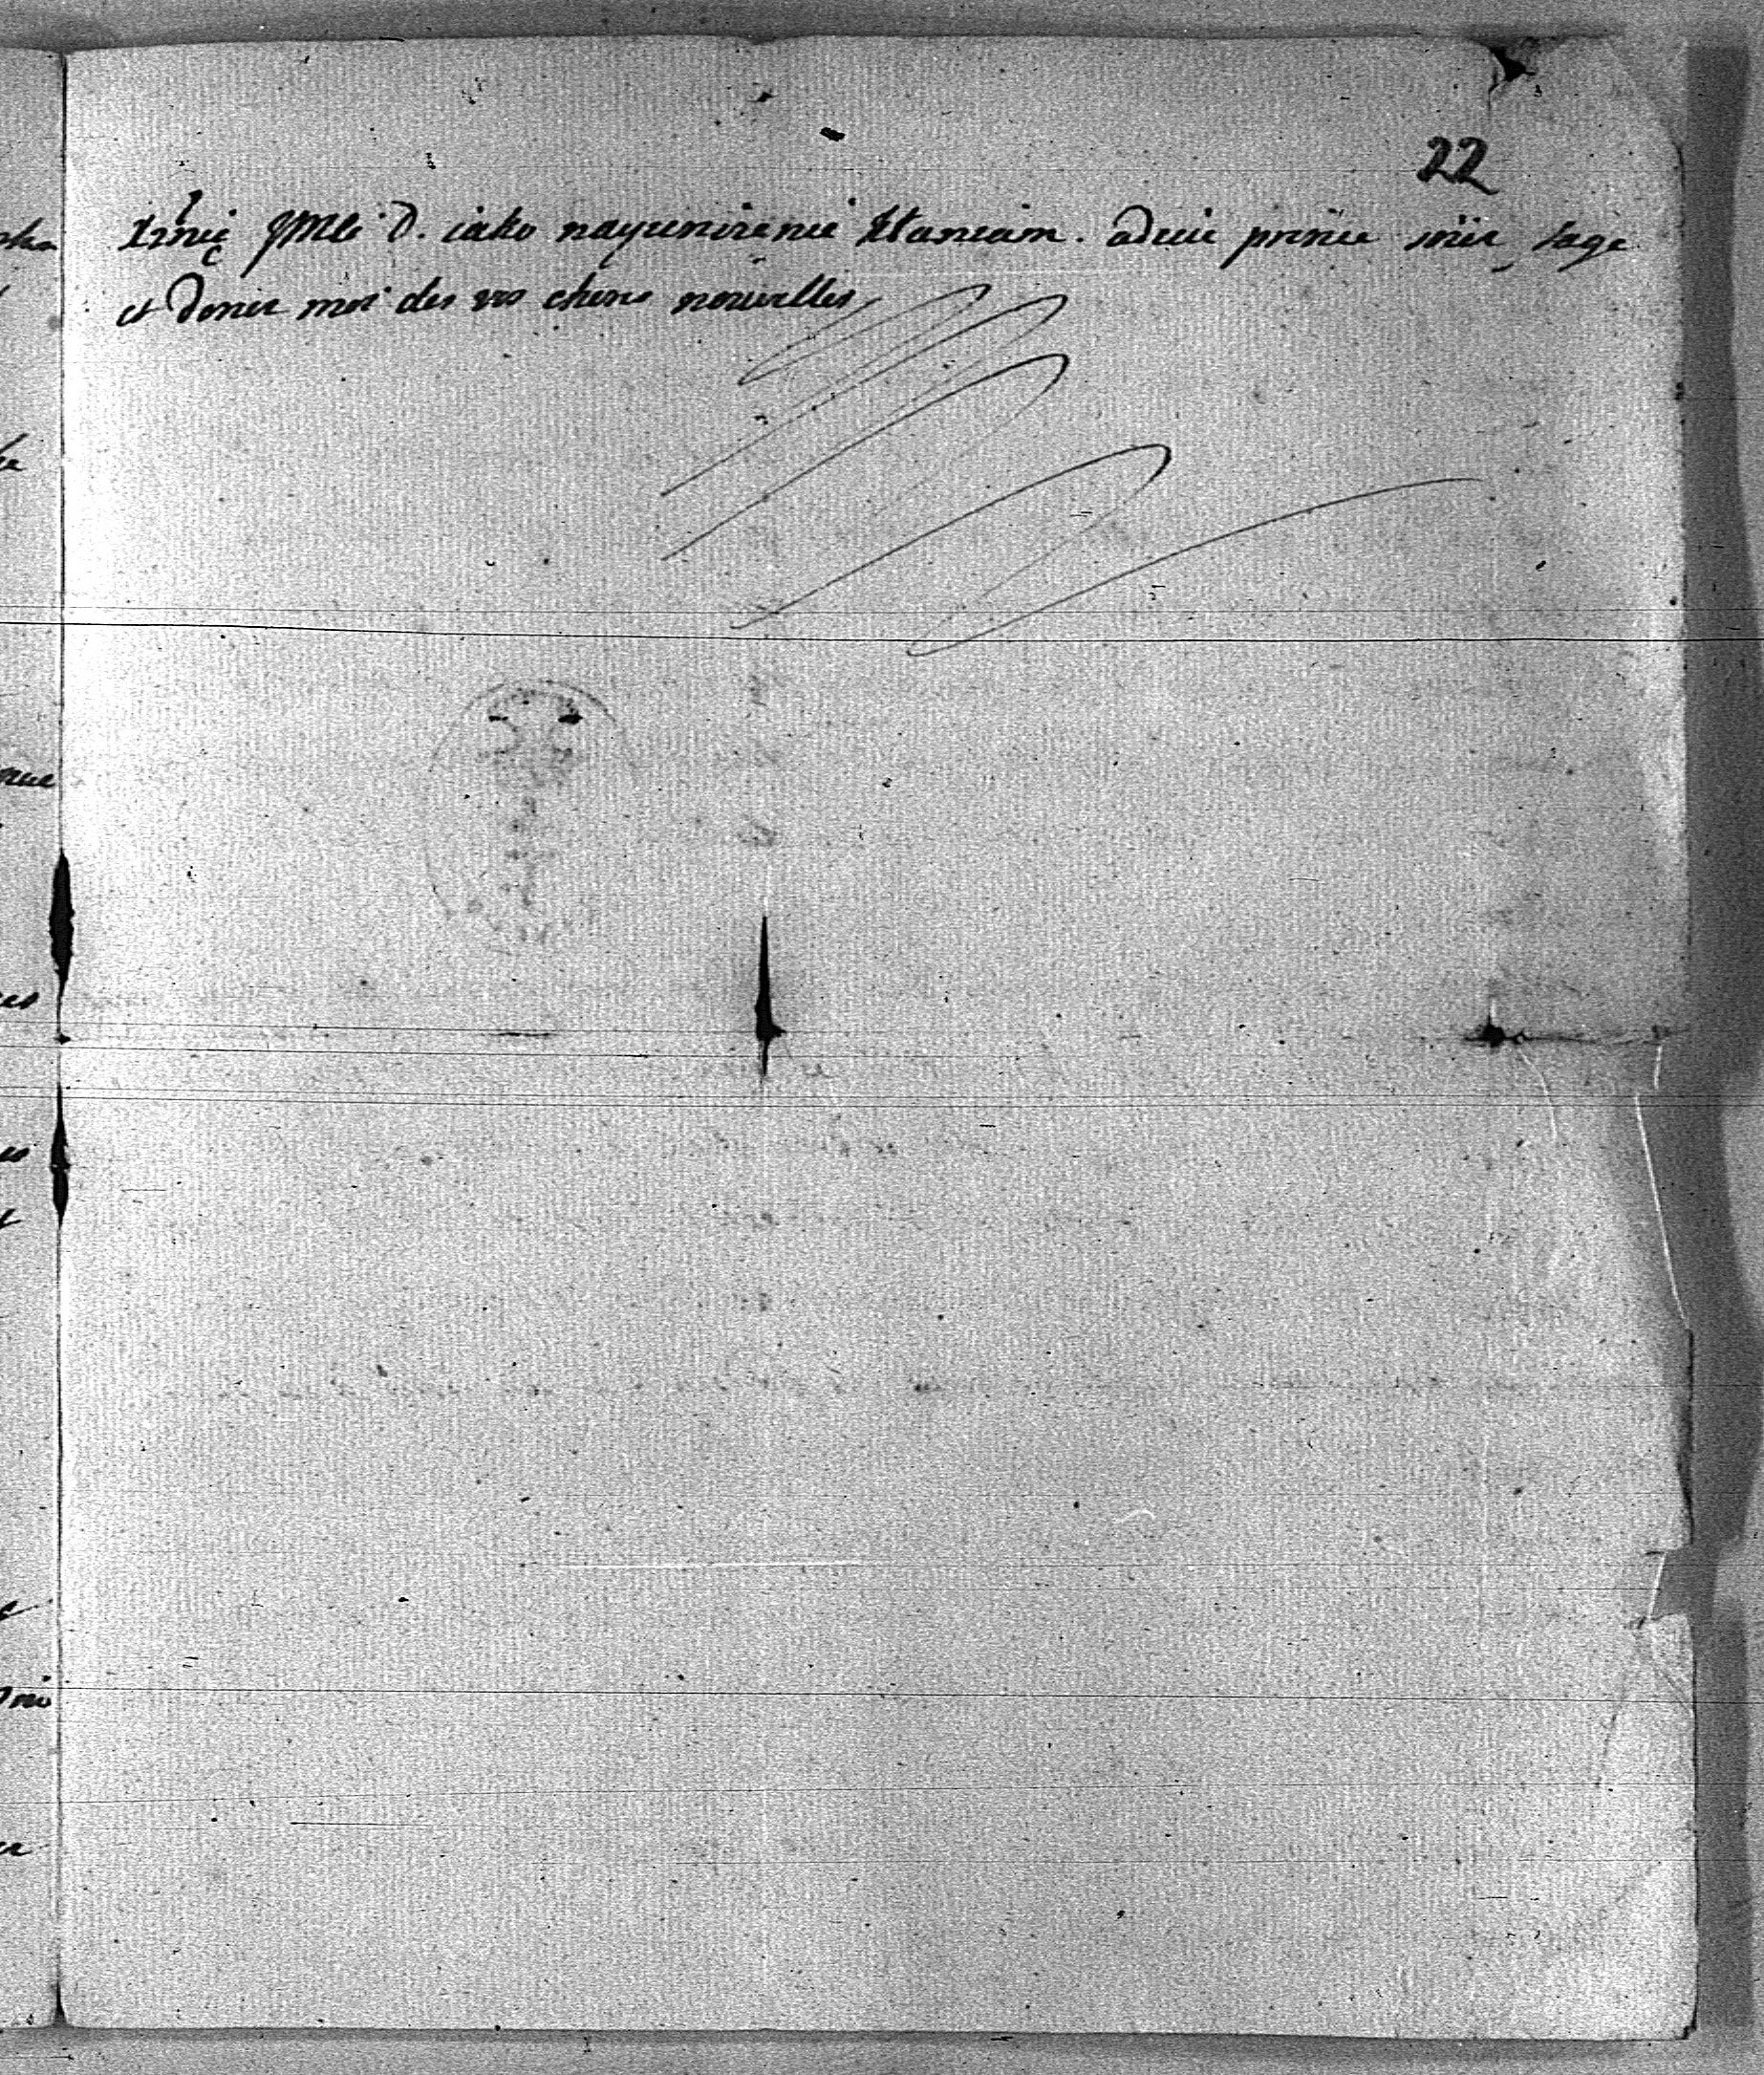 22
Xżnie JMci D. iako nayunizenie kłaniam. adieu prince soiez sage
et donez moi des vos cheres nouvelles